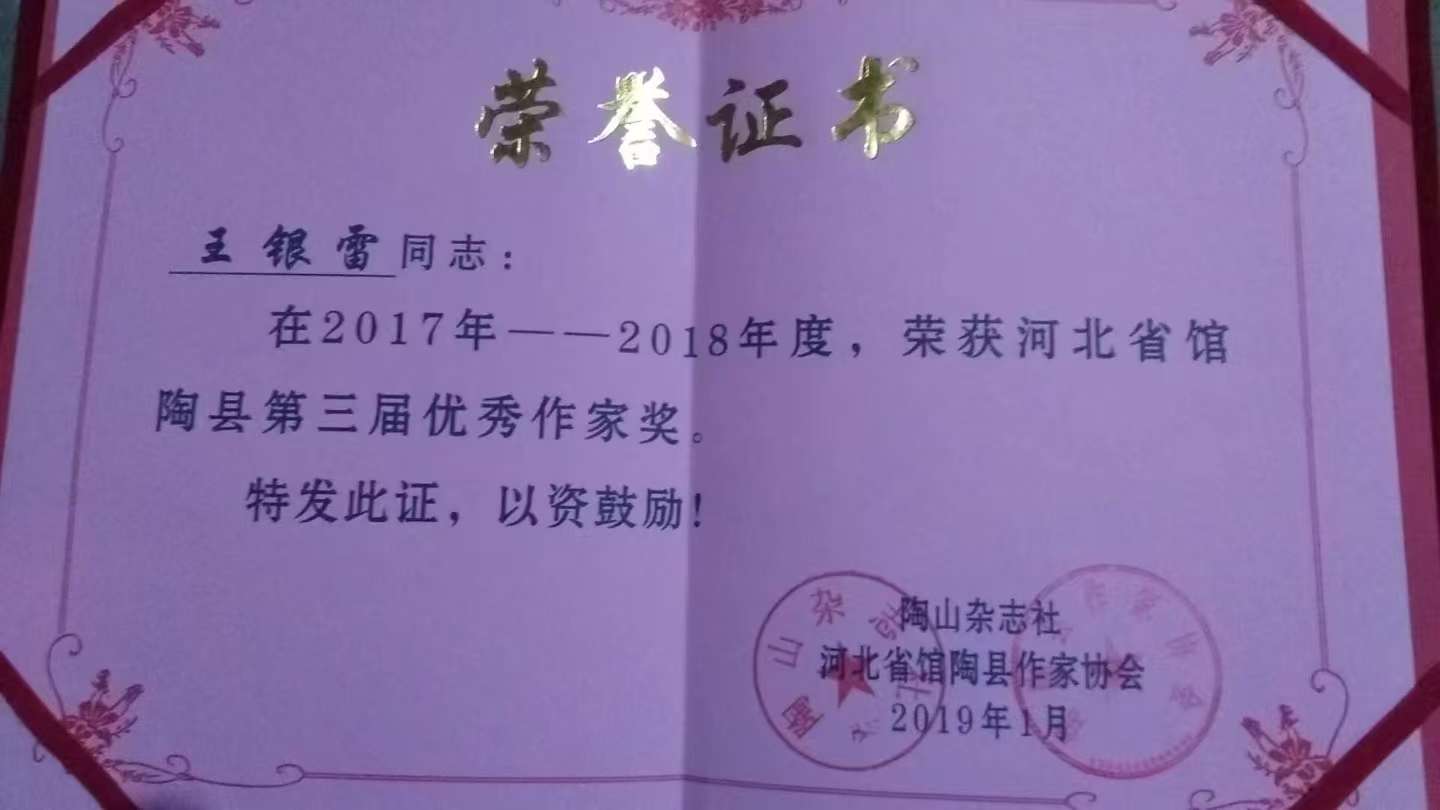 荣誉证书
王银雷同志：
在2017年——2018年度，荣获河北省馆
陶县第三届优秀作家奖。
特发此证，以资鼓励！
陶山杂志社
河北省馆陶县作家协会
2019年1月
陶山杂志社
作家协会